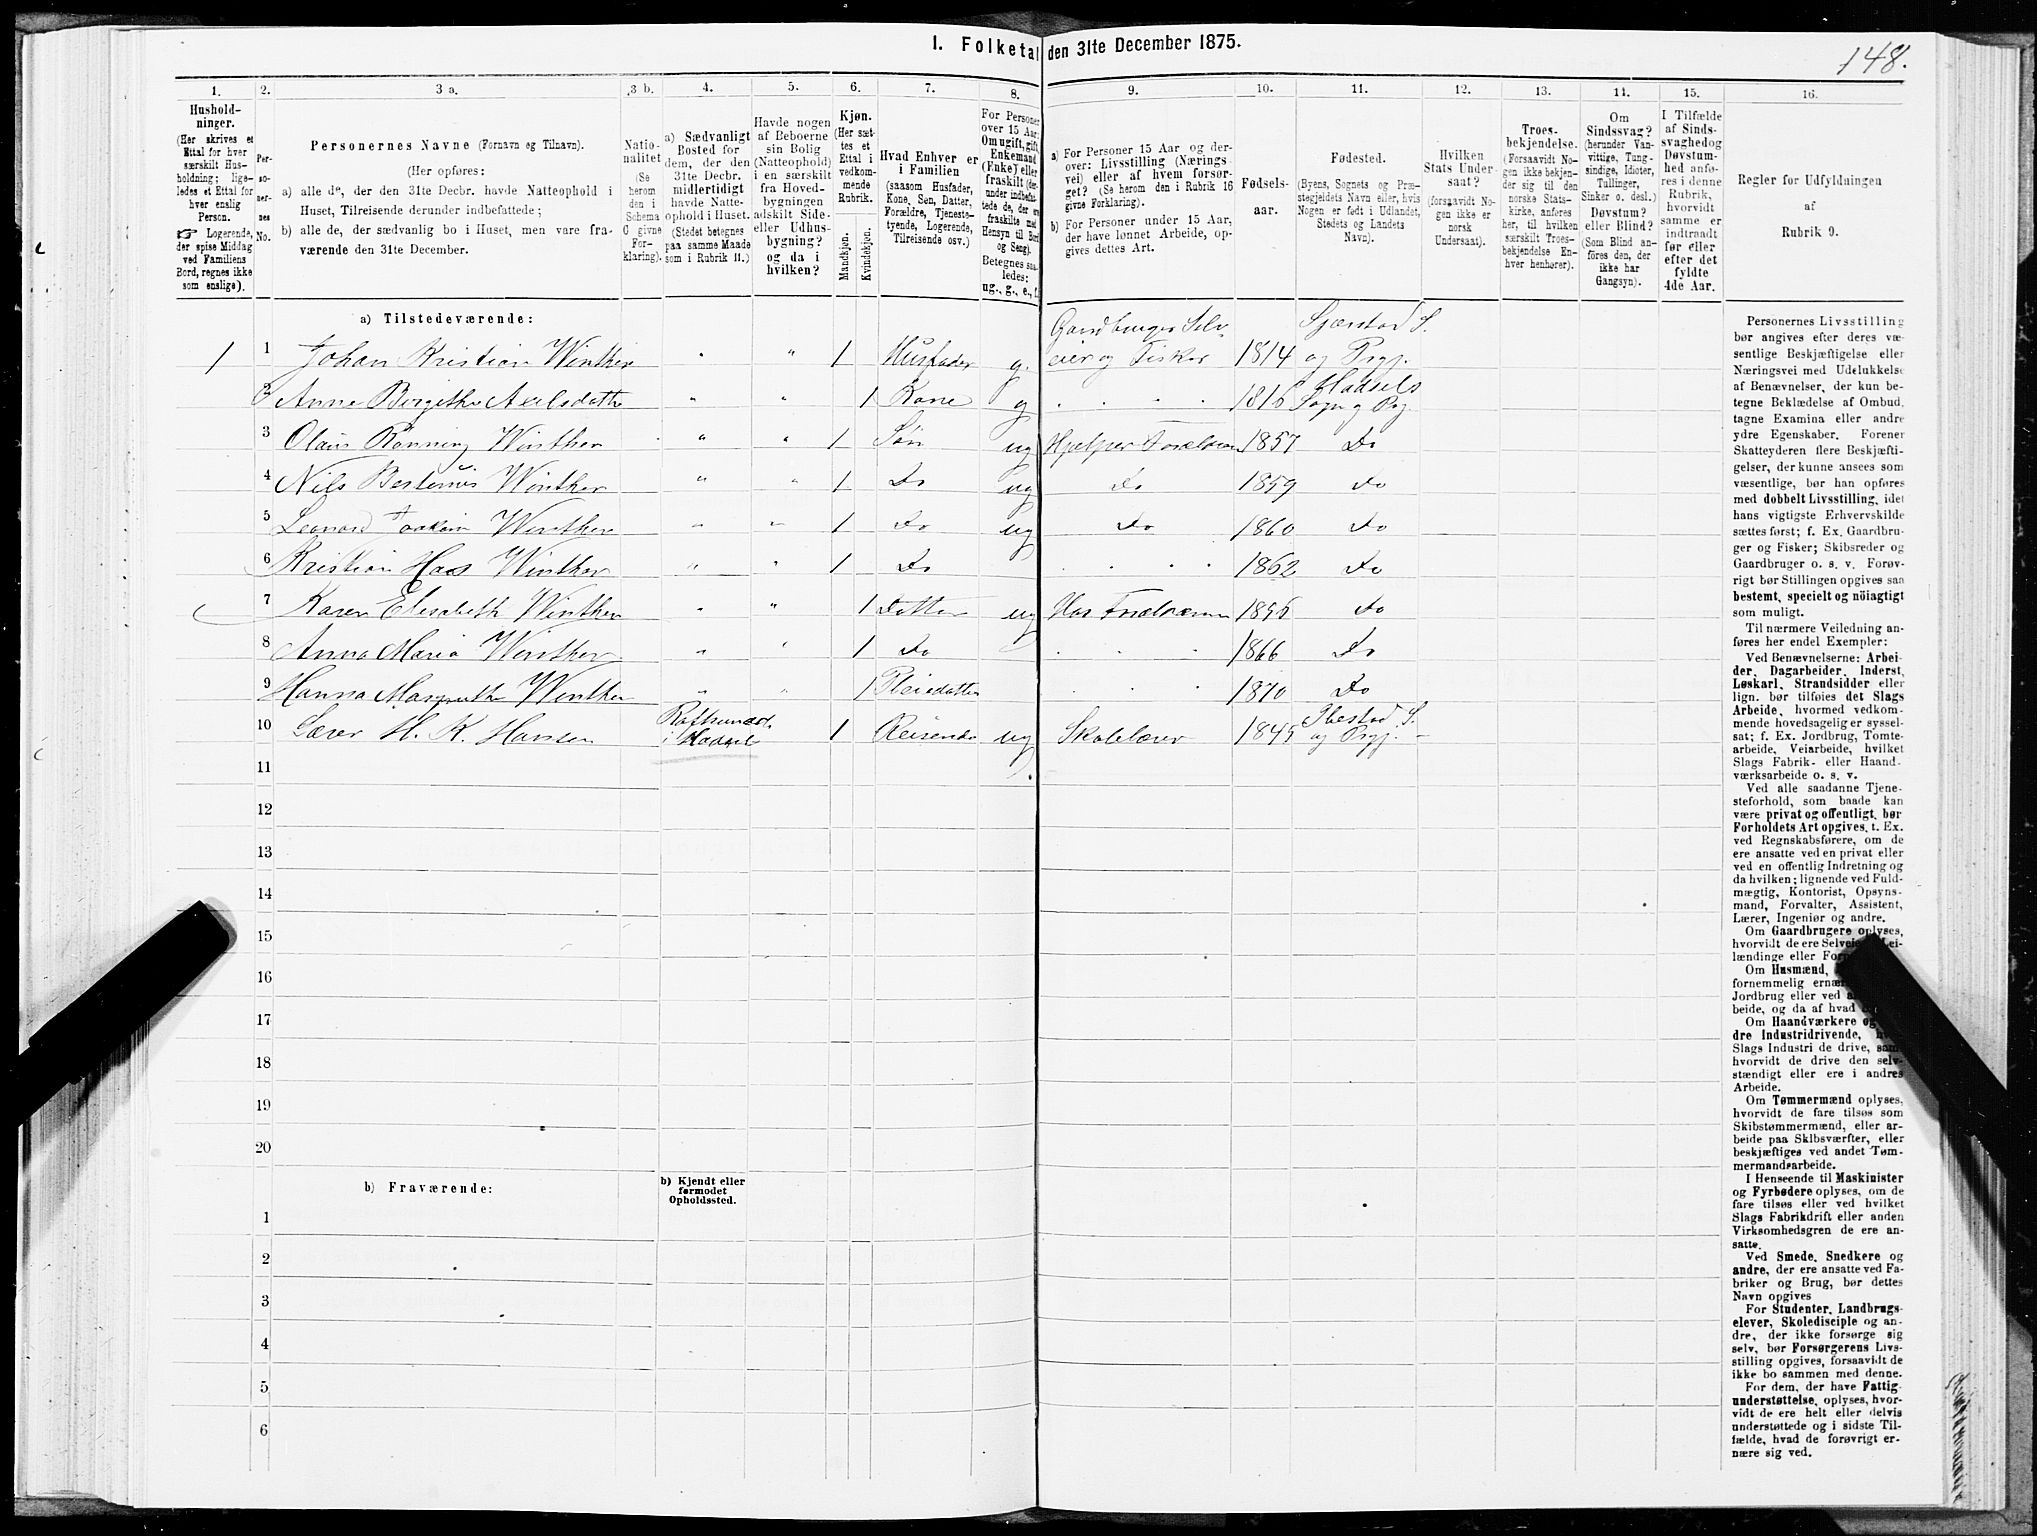 I. Folketal den 31te December 1875.
148.
1.
Husholdninger.
(Her skrives et
Ettal for hver
særskilt Husholdning; ligeledes et Ettal for
hver enslig
Person.
☞ Logerende,
der spise Middag
ved Familiens
Bord, regnes ikke
som enslige).
2.
Personernes
No.
3 a.
Personernes Navne (Fornavn og Tilnavn).
(Her opføres:
a) alle de, der den 31te Decbr. havde Natteophold i
Huset, Tilreisende derunder indbefattede;
b) alle de, der sædvanlig bo i Huset, men vare fraværende den 31te December.
3 b.
Nationalitet
(Se
herom
den i
Schema
C givne
Forklaring).
4.
a) Sædvanligt
Bosted for
dem, der den
31te Decbr.
midlertidigt
havde Natteophold i Huset.
(Stedet betegnes
paa samme Maade
som i Rubrik 11.)
5.
Havde nogen
af Beboerne
sin Bolig
(Natteophold)
i en særskilt
fra Hovedbygningen
adskilt Side-
eller Udhusbygning?
og da i
hvilken?
6.
Kjøn.
(Her sættes et
Ettal i
vedkommende
Rubrik.
Mandkjøn.
Kvindekjøn.
7.
Hvad Enhver er
i Familien
(saasom Husfader,
Kone, Søn, Datter,
Forældre, Tjenestetyende, Logerende,
Tilreisende osv.)
8.
For Personer
over 15 Aar:
Om ugift, gift,
Enkemand
(Enke) eller
fraskilt
Hensyn til Bord
og Seng).
Betegnes saaledes:
ug., g., e., f.
9.
a) For Personer 15 Aar og derover: Livsstilling (Næringsvei) eller af hvem forsørget? (Se herom den i Rubrik 16
givne Forklaring).
b) For Personer under 15 Aar,
der have lønnet Arbeide, opgives dettes Art.
10.
Fødselsaar.
11.
Fødested.
(Byens, Sognets og Præstegjeldets Navn eller, hvis
Nogen er født i Udlandet,
Stedets og Landets
Navn).
12.
Hvilken
Stats Undersaat?
(forsaavidt Nogen ikke er
norsk
Undersaat).
13.
Troesbekjendelse.
(Forsaavidt Nogen ikke bekjender sig til den
norske Statskirke, anføres
her, til hvilken
særskilt Troesbekjendelse Enhver henhører).
14.
Om
Sindssvag?
(herunder Vanvittige, Tungsindige, Idioter,
Tullinger,
Sinker o. desl.)
Døvstum?
eller Blind?
(Som Blind anføres den, der
ikke har
Gangsyn).
15.
I Tilfælde
af Sindssvaghed og
Døvstumhed anføres i denne
Rubrik,
hvorvidt
samme er
indtraadt
før eller
efter det
fyldte
4de Aar.
16.
Regler for Udfyldningen
af
Rubrik 9.
a) Tilstedeværende:
1 1 Johan Kristian Winther " " 1 Husfader g. Gardbruger Selveier og Fisker 1814 og Prgj.
2 Anne Birgithe Axelsdatter " " 1 Kone g 1816 Hadsels Sogn og Prgj.
3 Olaus Rønning Winther " " 1 Søn ug Hjælper Forældrene 1857 Do
4 Nils Winther " " 1 Do ug Do 1859 Do
5 Leonard Joakim Winther " " 1 Do ug Do 1860 Do
6 Kristian Winther " " 1 Do 1862 Do
7 Karen Elisabeth Winther " " 1 Datter ug Hos Forældrene Do
8 Anna Maria Winther " " 1 Do 1866 Do
9 Hanna Margreth Winther " " 1 Pleiedatter 1870 Do
10 Lærer H. K. Hansen i Hadsel 1 Reisende ug Skolelærer 1845 Ibestad S. og Prgj.
11
12
13
14
15
16
17
18
19
20
b) Fraværende:
b) Kjendt eller
formodet
Opholdssted.
1
2
3
4
5
6
Personernes Livsstilling
bør angives efter deres væsentlige Beskjæftigelse eller
Næringsvei med Udelukkelse
af Benævnelser, der kun betegne Beklædelse af Ombud,
tagne Examina eller andre
ydre Egenskaber. Forener
Skatteyderen flere Beskjæftigelser, der kunne ansees som
væsentlige, bør han opføres
med dobbelt Livsstilling, idet
hans vigtigste Erhvervskilde
sættes først; f. Ex. Gaardbruger og Fisker; Skibsreder og
Gaardbruger o. s. v. Forøvrigt bør Stillingen opgives saa
bestemt, specielt og nöiagtigt
som muligt.
Til nærmere Veiledning anføres her endel Exempler:
Ved Benævnelserne: Arbeider, Dagarbeider, Inderst,
Løskarl, Strandsidder eller
lign. bør tilføies det Slags
Arbeide, hvormed vedkommende hovedsagelig er sysselsat; f. Ex. Jordbrug, Tomtearbeide, Veiarbeide, hvilket
Slags Fabrik- eller Haandværksarbeide o. s. v.
Ved alle saadanne Tjenesteforhold, som baade kan
være privat og offentligt, bør
Forholdets Art opgives, t. Ex.
ved Regnskabsførere, om de
ere ansatte ved en privat eller
ved en offentlig Indretning og
da hvilken; lignende ved Fuldmægtig, Kontorist, Opsynsmand, Forvalter, Assistent,
Lærer, Ingeniør og andre.
Om Gaardbrugere oplyses,
hvorvidt de ere Selveiere, Leilændinge eller
Om Husmænd,
fornemmelig
Jordbrug eller ved
beide, og da af hvad
Om Haandværkere og
dre Industridrivende,
Slags Industri de drive, samt
hvorvidt de drive den selvstændigt eller ere i andres
Arbeide.
Om Tømmermænd oplyses,
hvorvidt de fare tilsøs som
Skibstømmermænd, eller arbeide paa Skibsværfter, eller
beskjæftiges ved andet Tømmermandsarbeide.
I Henseende til Maskinister
og Fyrbødere oplyses, om de
fare tilsøs eller ved hvilket
Slags Fabrikdrift eller anden
Virksomhedsgren de ere ansatte.
Ved Smede, Snedkere og
andre, der ere ansatte ved Fabriker og Brug, bør dettes
Navn opgives
For Studenter, Landbrugselever, Skoledisciple og andre, der ikke forsørge sig
selv, bør Forsørgerens Livsstilling opgives, forsaavidt de
ikke bo sammen med denne.
For dem, der have Fattigunderstøttelse, oplyses, hvorvidt de ere helt eller delvis
understøttede og i sidste Tilfælde, hvad de forøvrigt ernære sig ved.